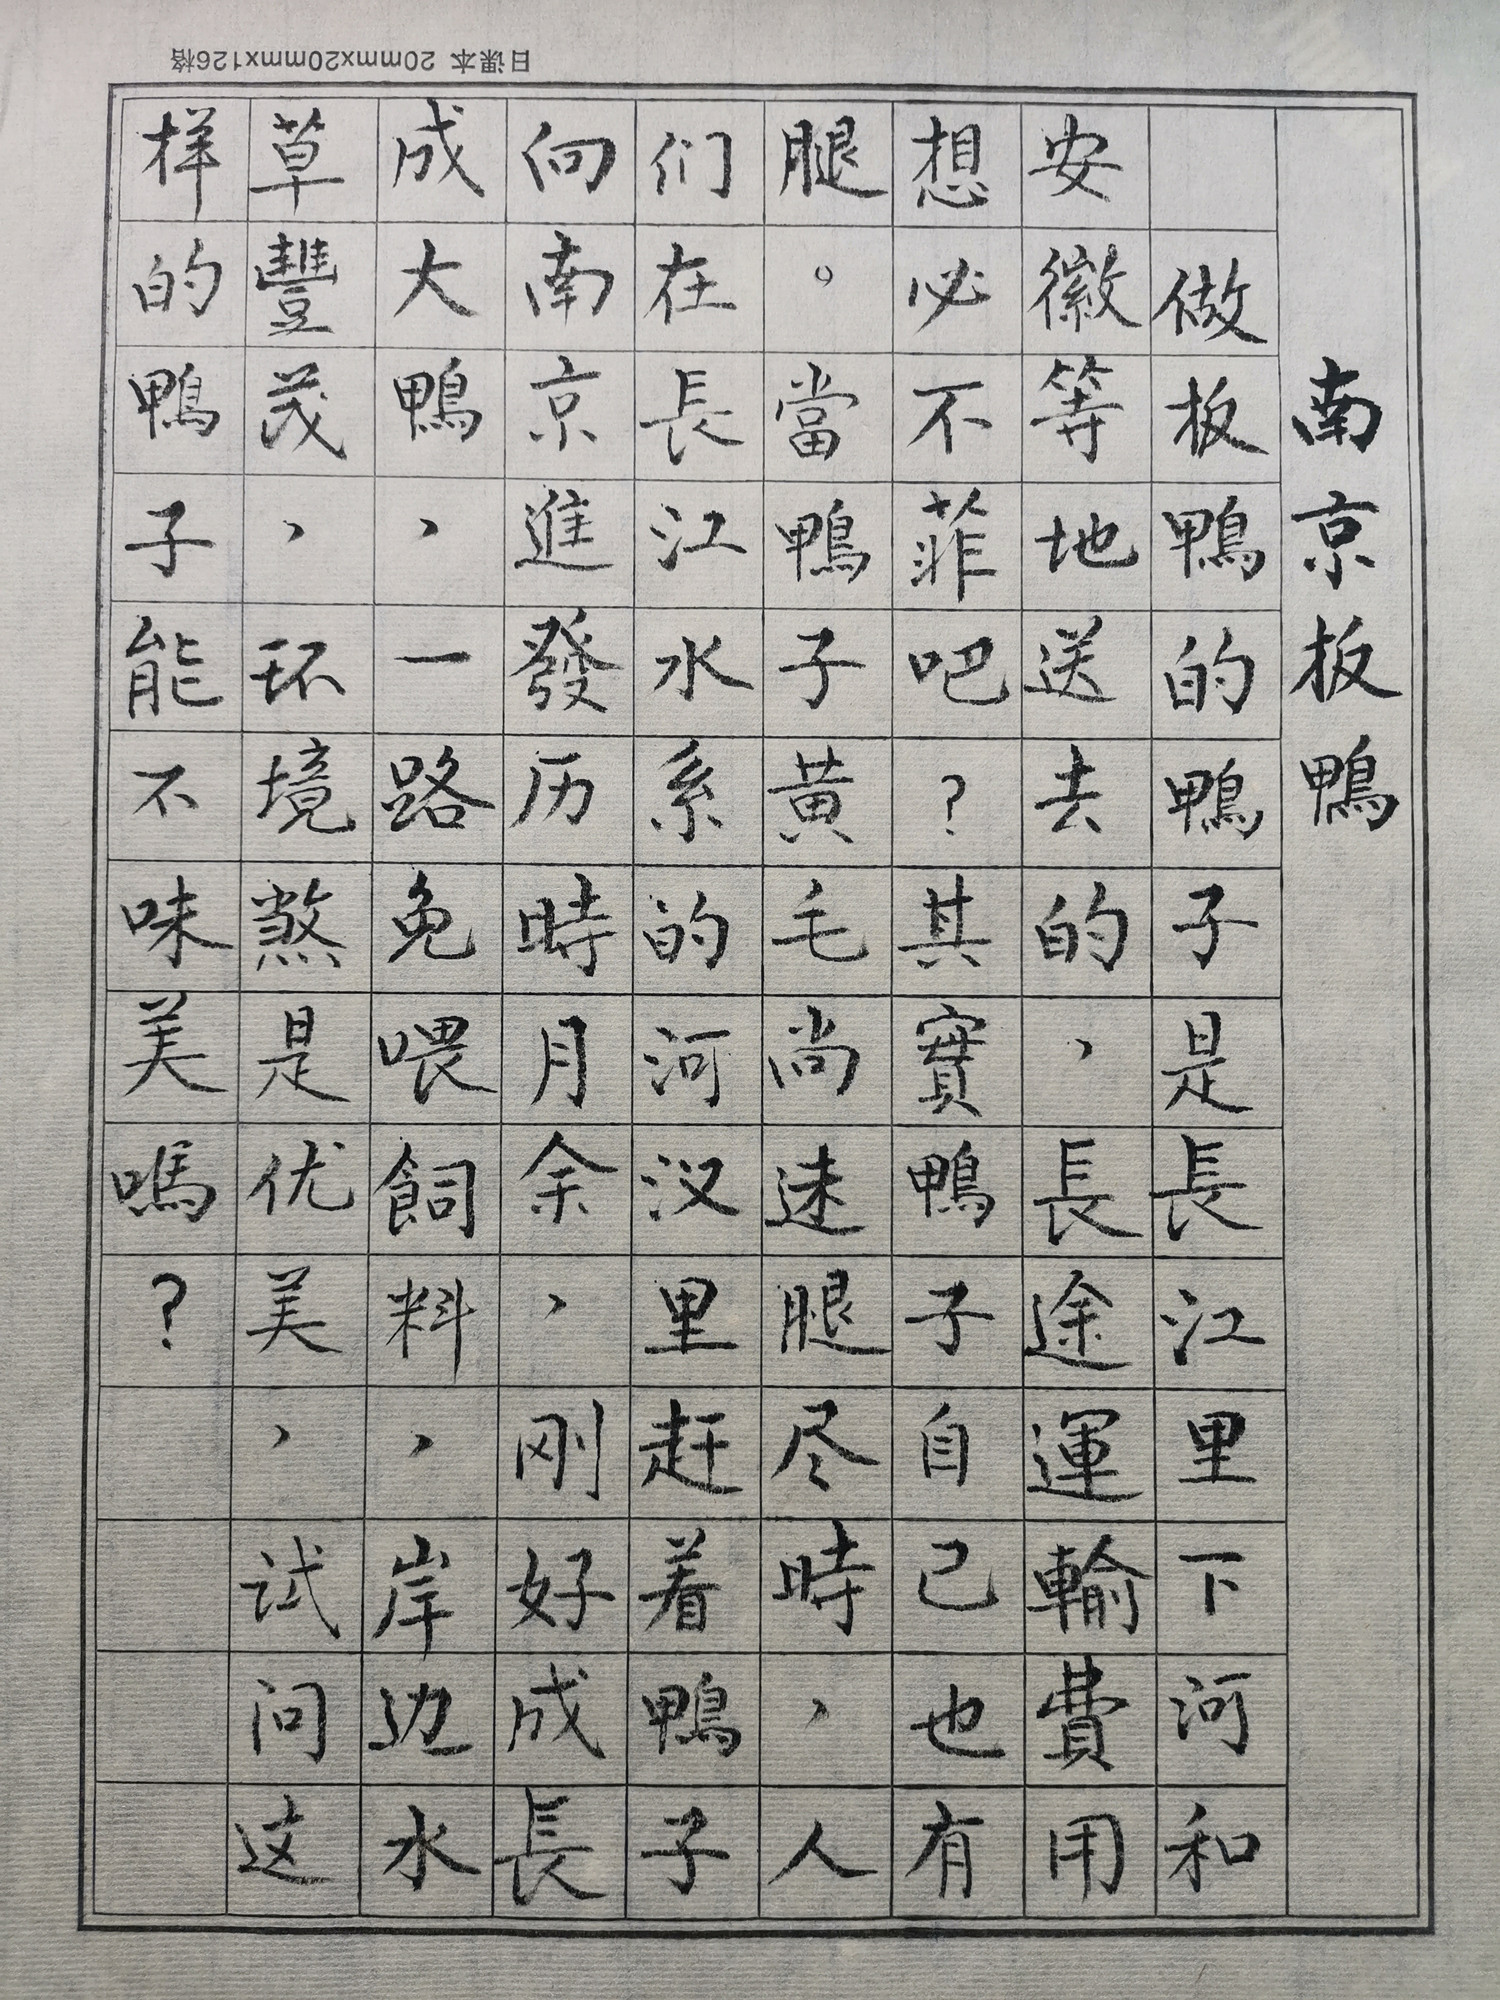 日课本 20mmx20mmx126格
南京板鴨
做板鴨的鴨子是長江里下河和
安徽等地送去的，長途運輸費用
想必不菲吧？其實鴨子自己也有
腿。當鴨子黄毛尚未腿尽時，人
们在長江水系的河汊里赶着鴨子
向南京進發历時月余，刚好成長
成大鴨，一路免喂飼料，岸边水
草豐茂，环境煞是优美，试问这
样的鴨子能不味美嗎？